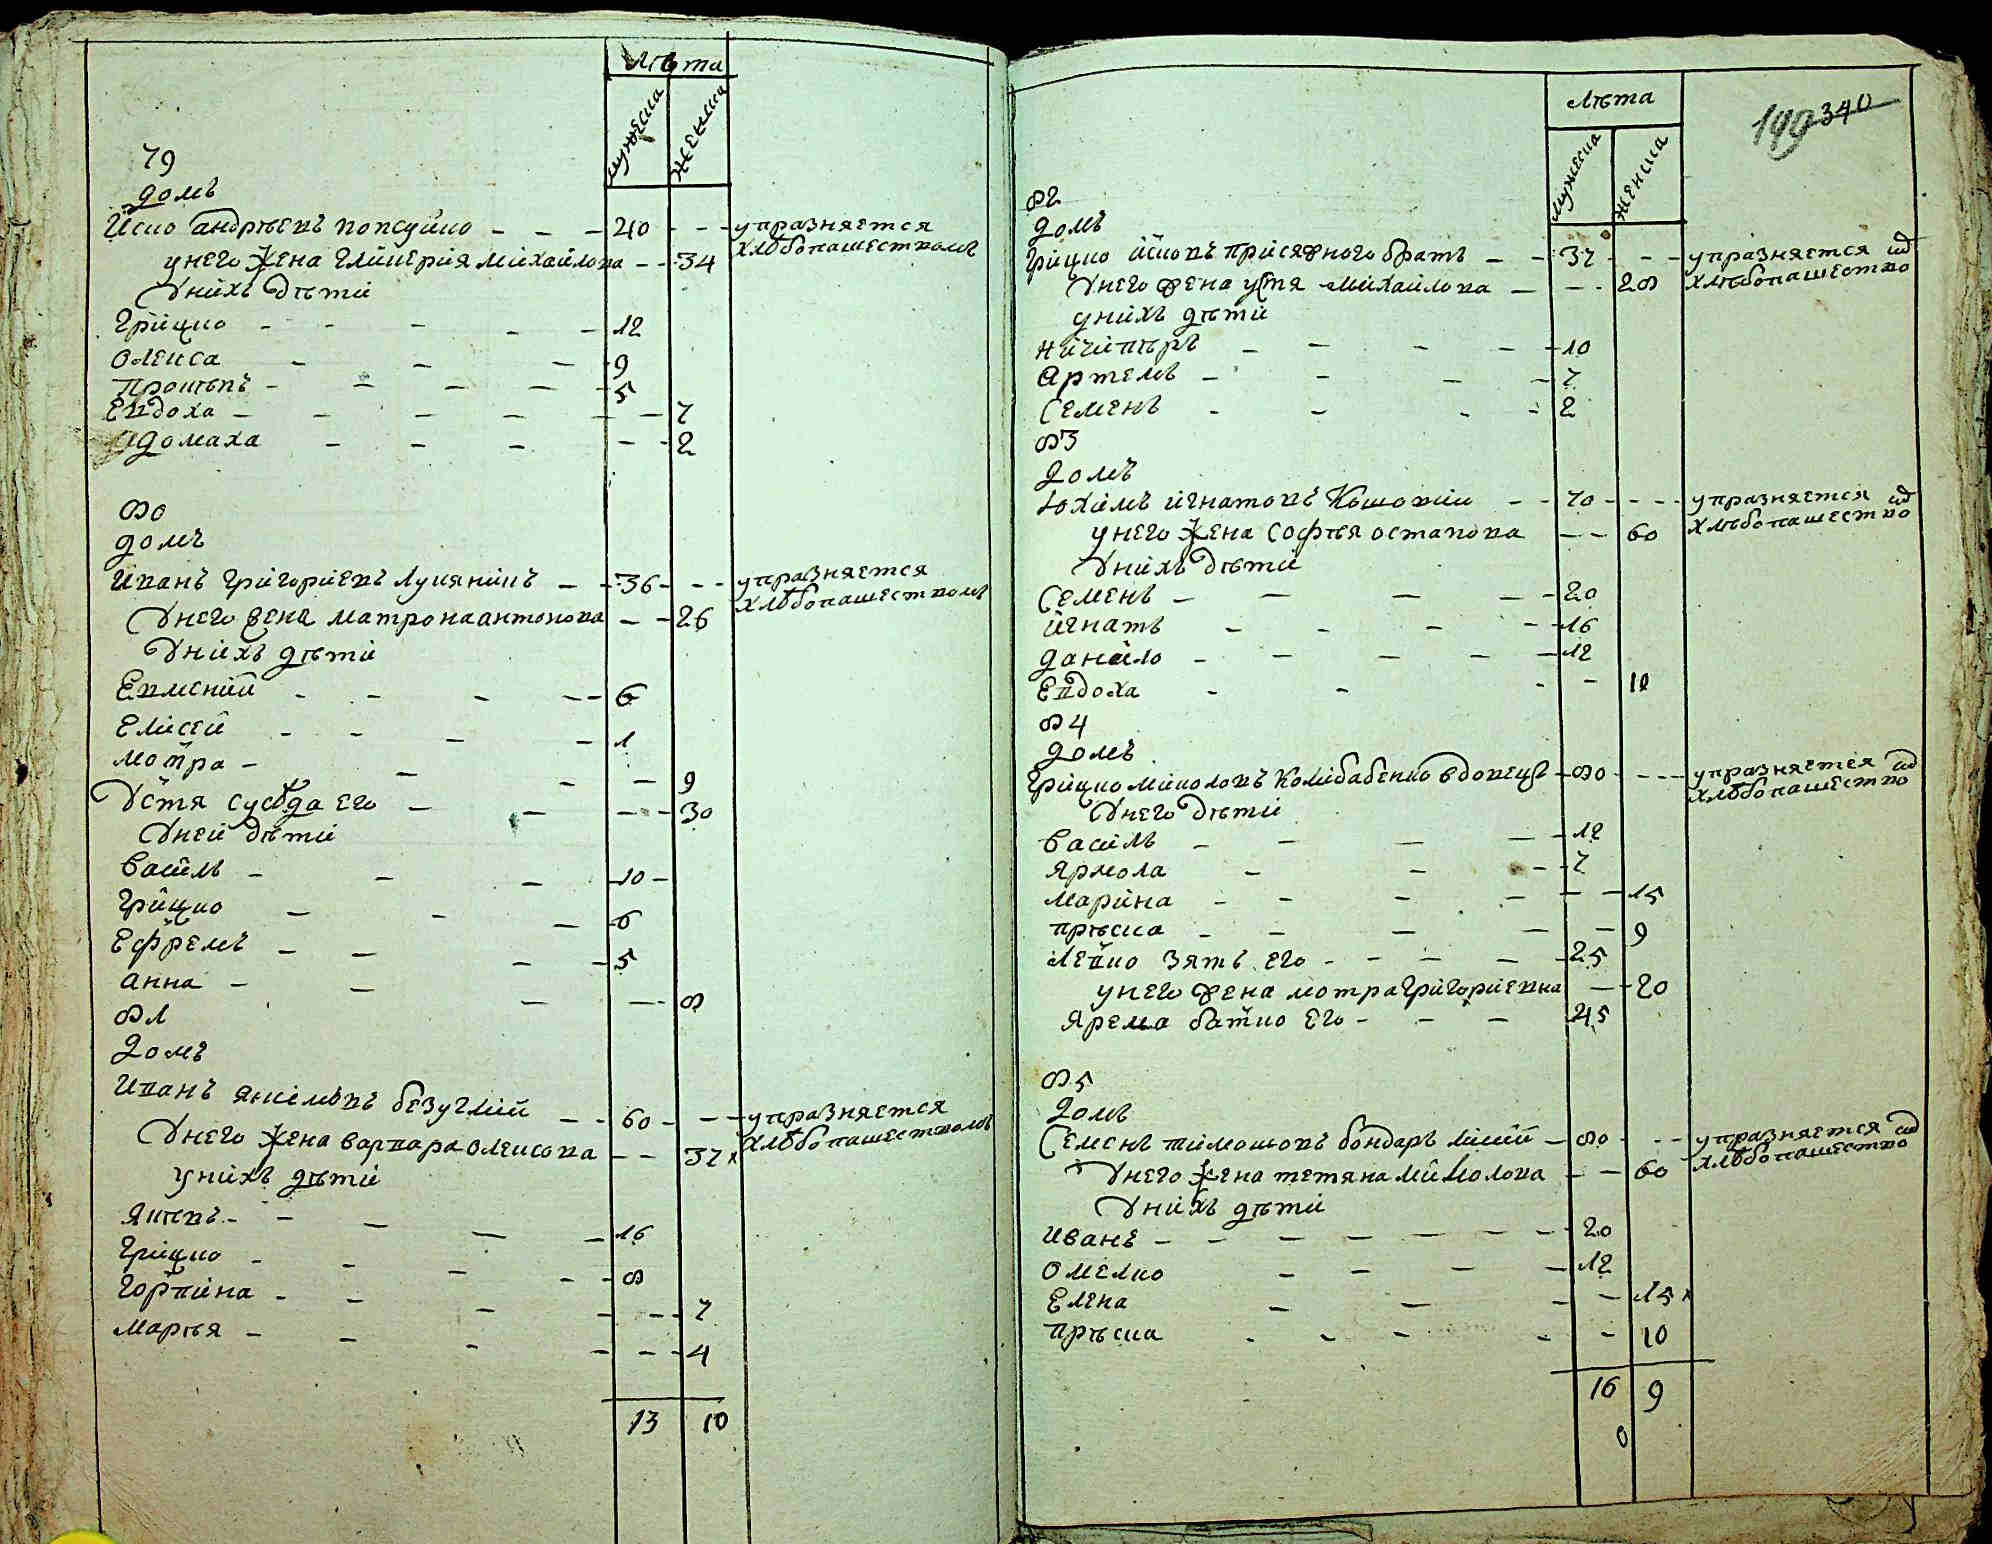 Лѣта
мужеска
женска
79
домъ
Иско андрѣевъ попсуйко 40 упразняется
хлѣбопашествомъ
унего жена гликерия михайлова 34
Унихъ дѣти
Грицко 12
Олекса 9
Прокѣпъ 5
Евдоха 7
домаха 2
80
домъ
Иванъ григориевъ лукянинъ 36 упразняется
хлѣбопашествомъ
Унего жена матрона антонова 26
Унихъ дѣти
Евмений 6
Елисей 1
мотра 9
Устя сусѣда его 30
Уней дѣти
василь 10
Грицко 6
Ефремъ 5
анна 8
81
домъ
Иванъ якимовъ безуглий 60 упразняется
хлѣбопашествомъ
Унего жена варвара олексова 37
унихъ дѣти
Яковъ 16
Грицко 8
горпина 7
марѣя 4
13 10
Лѣта
199 340
мужеска
женска
82
домъ
Грицко иковъ присяжного братъ 37 упразняется
хлѣбопашество
Унего жена устя михайлова 28
унихъ дѣти
ничипѣръ 10
артемъ 7
Семенъ 2
83
домъ
Юхимъ игнатовъ 70 упразняется
хлѣбопашество
унего жена софѣя остапова 60
Унихъ дѣти
Семенъ 20
игнатъ 16
данило 12
Евдоха 10
84
домъ
Грицко миколовъ Колибабенко вдовецъ 80 упразняется
хлѣбопашество
Унего дѣти
василь 12
Ярмола 7
марина 15
прѣска 9
левко зять его 25
унего жена мотра григориевна 20
Ярема батко его 45
85
домъ
Семенъ тимошовъ бондарь 80 упразняется
хлѣбопашество
Унего жена тетяна миколова 60
Унихъ дѣти
иванъ 20
Омелко 12
Елена 15
прѣска 10
16 9
0